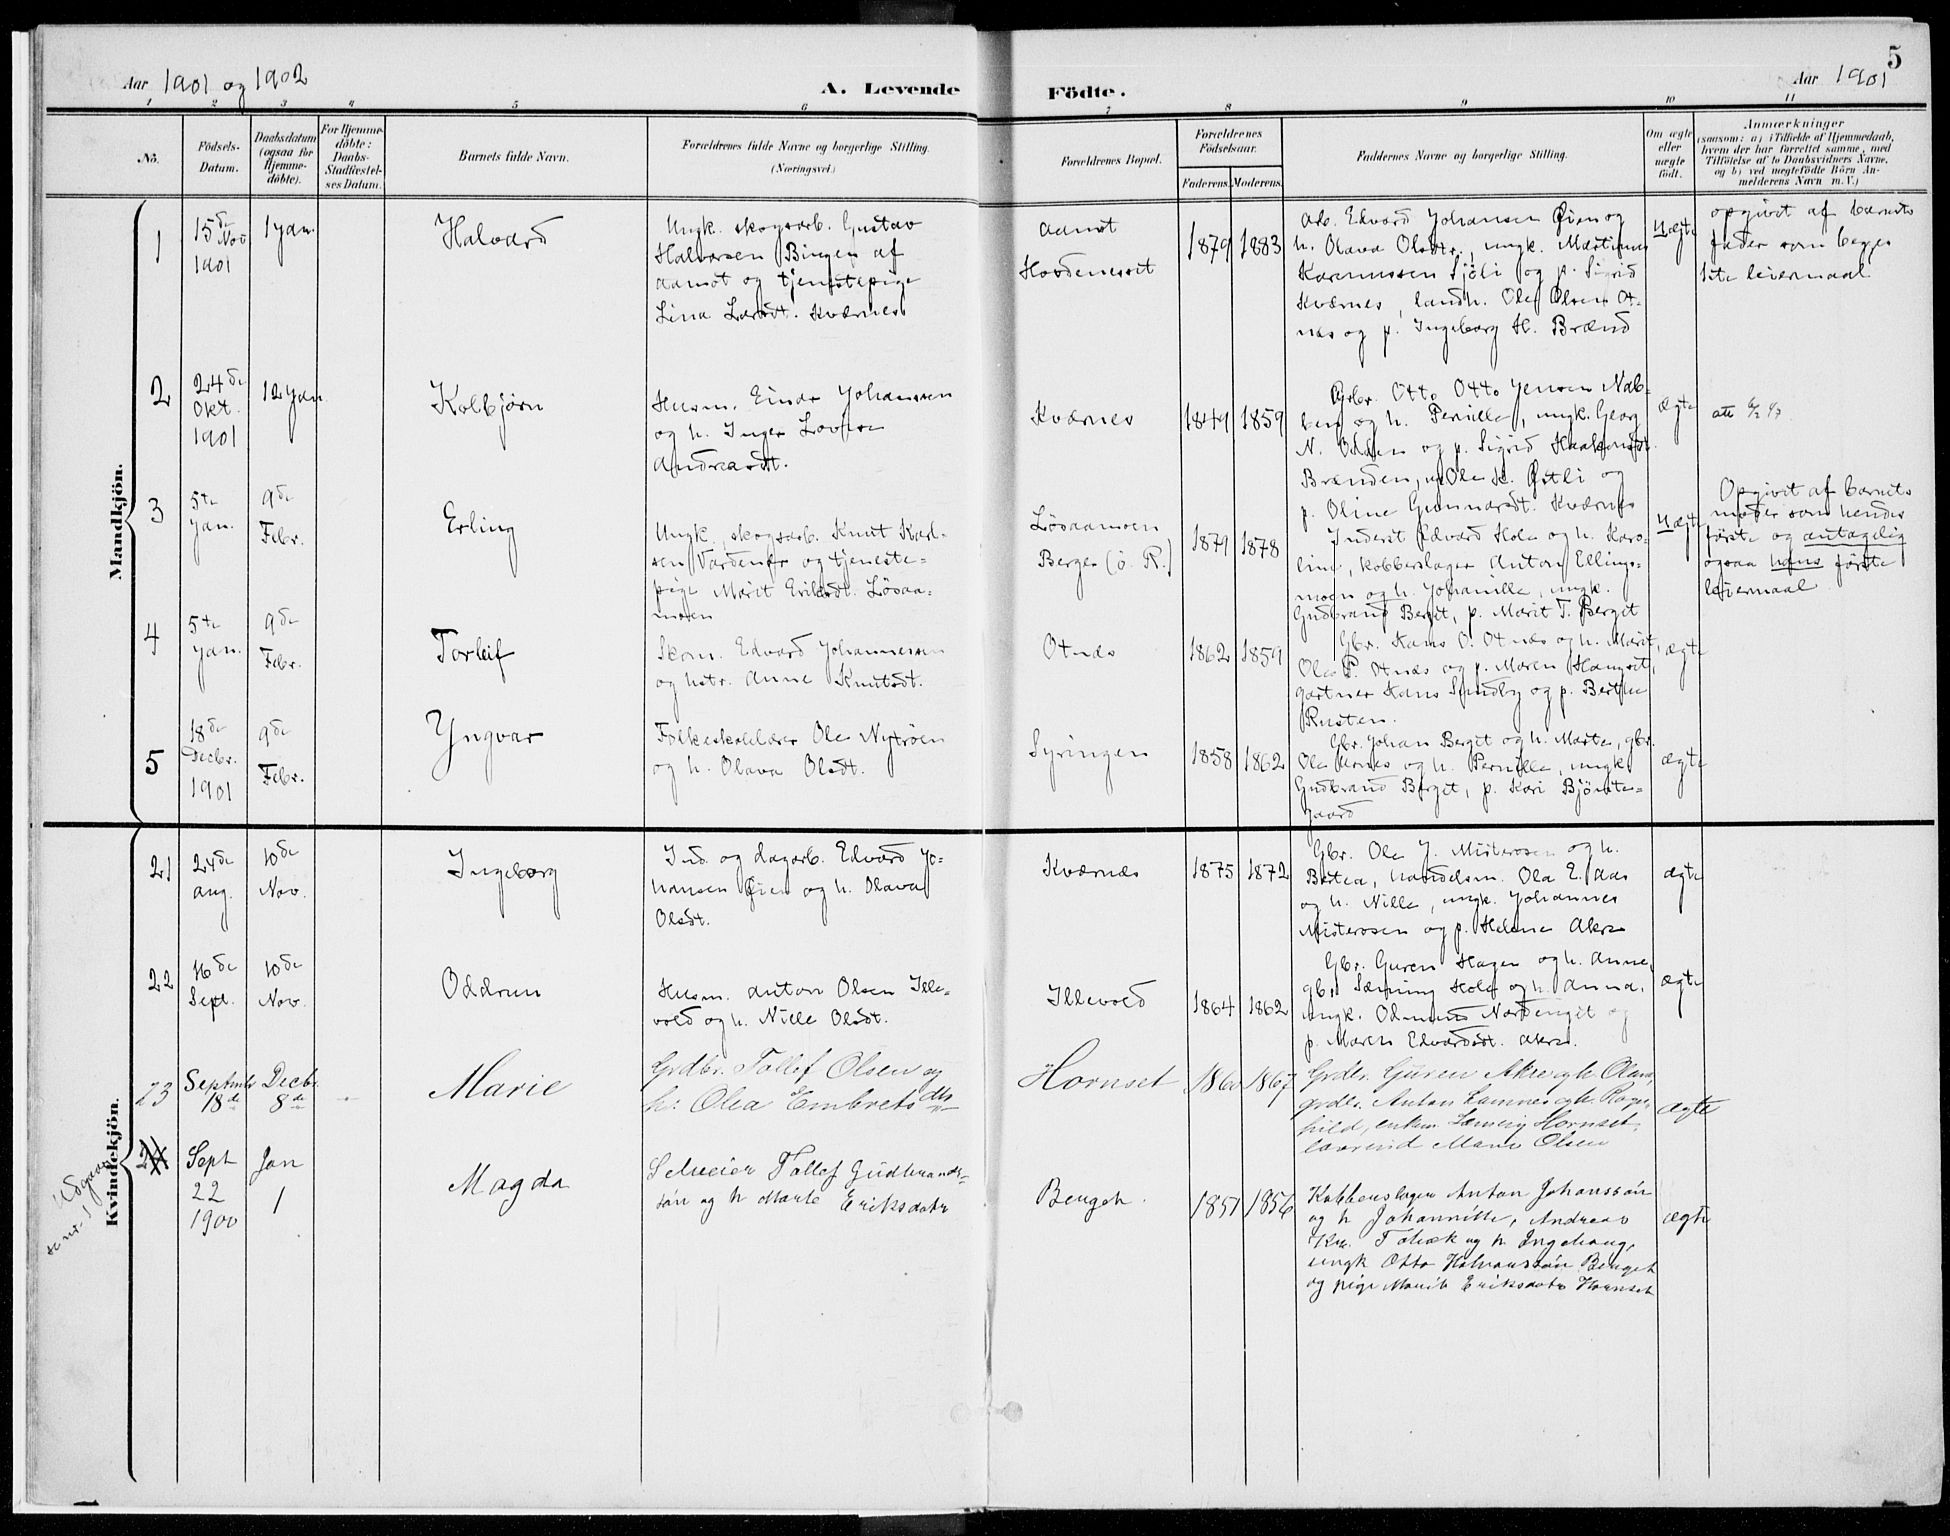 5
Aar 1901 og 1902
A. Levende
Födte.
Aar 1901
1 2 3 4 5 6 7 8 9 10 11
No.
Födsels-
Datum.
Daabsdatum
(ogsaa for
Hjemme-
döbte).
For Hjemme-
döbte:
Daabs-
Stadfæstel-
ses Datum.
Barnets fulde Navn.
Forældrenes fulde Navne og borgerlige Stilling.
(Næringsvei.)
Forældrenes Bopæl.
Forældrenes
Födselsaar.
Faderens. Moderens.
Faddernes Navne og borgerlige Stilling.
Om ægte
eller
uægte
födt.
Anmærkninger
(saasom: a) i Tilfælde af Hjemmedaab,
hvem der har forrettet samme, med
Tilföielse af to Daabsvidners Navne,
og b) ved uegtefödte Börn An-
melderens Navn m. V.)
Mandkjön.
1
15de
Nov
1901
1 Jan.
Halvard
Ungk. skogsarb. Gustav
Halvorsen Bingen af
Aamot og tjenestepige
Lina Larsdt. Kværnes
Aamot
Hovdenesset
1879 1883
Arb. Edvard Johansen Øien og
h. Olava Olsdtr., ungk. Martinus
Rasmussen Sjöli og p. Sigrid
Kværnes, landh. Ole Olsen Ot-
nes og p. Ingeborg H. Brænd
Uægte
opgivet af barnets
fader som beges
1ste leiermaal
2
24de
Okt.
1901
12 Jan
Kolbjørn
Husm. Einar Johanssen
og h. Inger Lovise
Andreasdt.
Kværnes
1849 1859
Grbr. Otto Otto Jensen Nab-
ben og h. Pernille, ungk. Georg
N. Odden og p. Sigrid Haakensdt.
Brænden, u. Ole K. Østli og
p. Oline Gunnarsdt. Kværnes
Ægte
att 6/2 47.
3
5te
Jan.
9de
Febr.
Erling
Ungk., skogsarb. Knut Karl-
sen Vardenær og tjeneste-
pige Marit Eriksdt. Løsaa-
moen
Løsaamoen
Berget (ö. R.)
1879 1878
Inderst Edvard Hole og h. Karo-
line, kobberslager Anton Ellings-
moen og h. Johanille, ungk.
Gudbrand Berget, p. Marit T. Berget
Uægte
Opgivet af barnets
moder som hendes
første og antagelig
ogsaa hans første
leiermaal
4
5te
Jan.
9de
Febr.
Torleif
Skom. Edvard Johannessen
og hstr. Anne Knutsdt.
Otnæs
1862 1859
Gbr. Hans O. Otnæs og h. Marit,
Ole P. Otnæs og p. Maren Hangset,
gartner Hans Sundby og p. Berthe
Rusten.
ægte
5
18de
Decbr.
1901
9de
Febr.
Yngvar
Folkeskolelærer Ole Nytrøen
og h. Olava Olsdt.
Syringen
1858 1862
Gbr. Johan Berget og h. Marte, gbr.
Ole Urnes og h. Pernille, ungk.
Gudbrand Berget, p. Kari Bjørste-
gaard
ægte
Kvindekjön.
21
24de
Aug.
10de
Nov.
Ingeborg
Ind. og dagarb. Edvard Jo-
hansen Øien og h. Olava
Olsdt.
Kværnæs
1875 1872
Gbr. Ole J. Misterosen og h.
Bertea, handelsm. Ola E. Aas
og h. Nille, ungk. Johannes
Misterosen og p. Helene Akre
ægte
22
16de
Sept.
10de
Nov.
Oddrun
Husm. Anton Olsen Ille-
vold og h. Nille Olsdt.
Illevold
1864 1862
Gbr. Guren Hagen og h. Anne,
gbr. Sæming Hole og h. Anna,
ungk. Odmund Nordenget og
p. Maren Edvardsdt. Akre.
ægte
23
Septmbr
18de
Decbr.
8de
Marie
Grdbr. Tollef Olsen og
h: Olea Embretsdtr
Hornset
1860 1867
Grdbr. Guren Akre og h. Olava,
grdbr. Anton Lamnes og h. Ragn-
hild, enkem Sæming Hornset,
lærerind Marie Olsen
ægte
24
Sept
22
1900
Jan
1
Magda
Selveier Tollef Gudbrands-
søn og h Marte Eriksdatr
Berget
1851 1856
Kobberslager Anton Johanssøn
og h Johannille, Andreas
Kr. Folvek og h. Ingeborg,
ungk Otto Halvorssøn Berget
og pige Marit Eriksdatr Hornset
ægte
Udgaar
se nr. 1